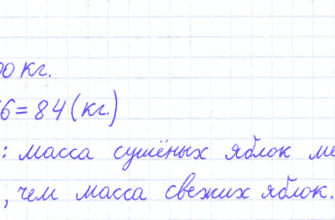 00 кг.
6 = 84 (кг.)
: масса сушёных яблок ме
, чем масса свежих яблок.